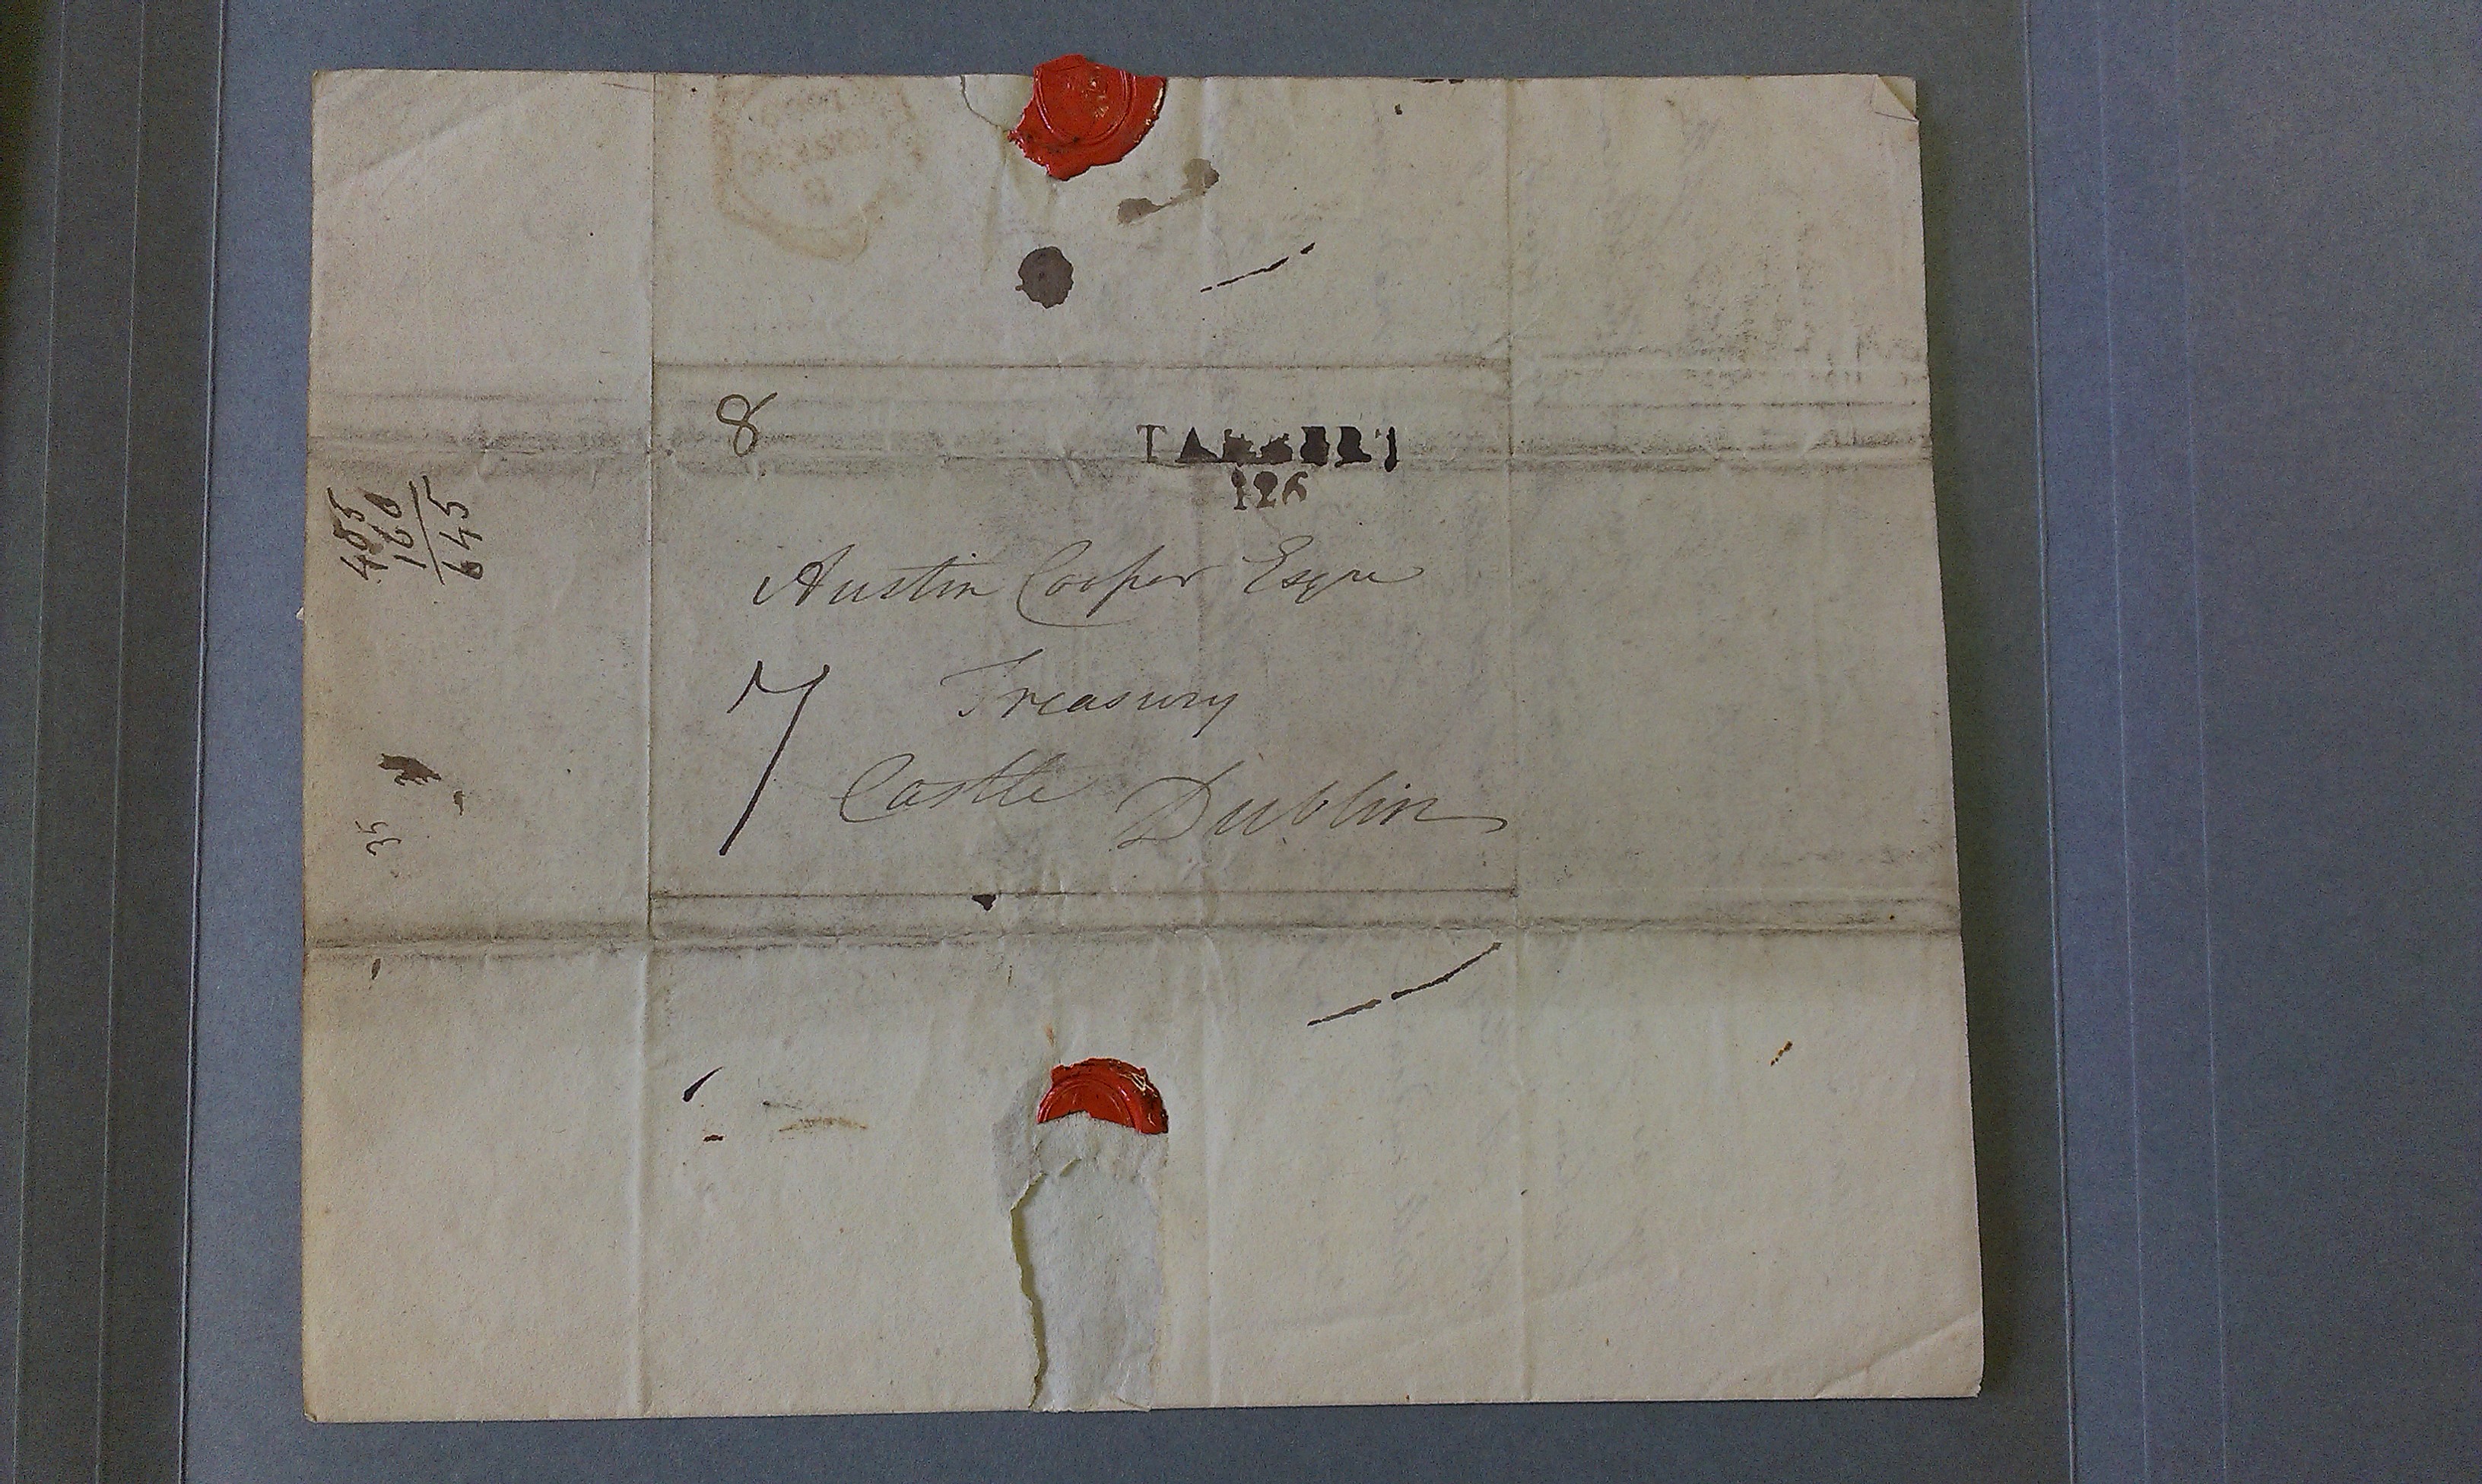 8
TARBERT
126
Austin Cooper Esqre
7
Treasury
Castle Dublin
485
160
645
35